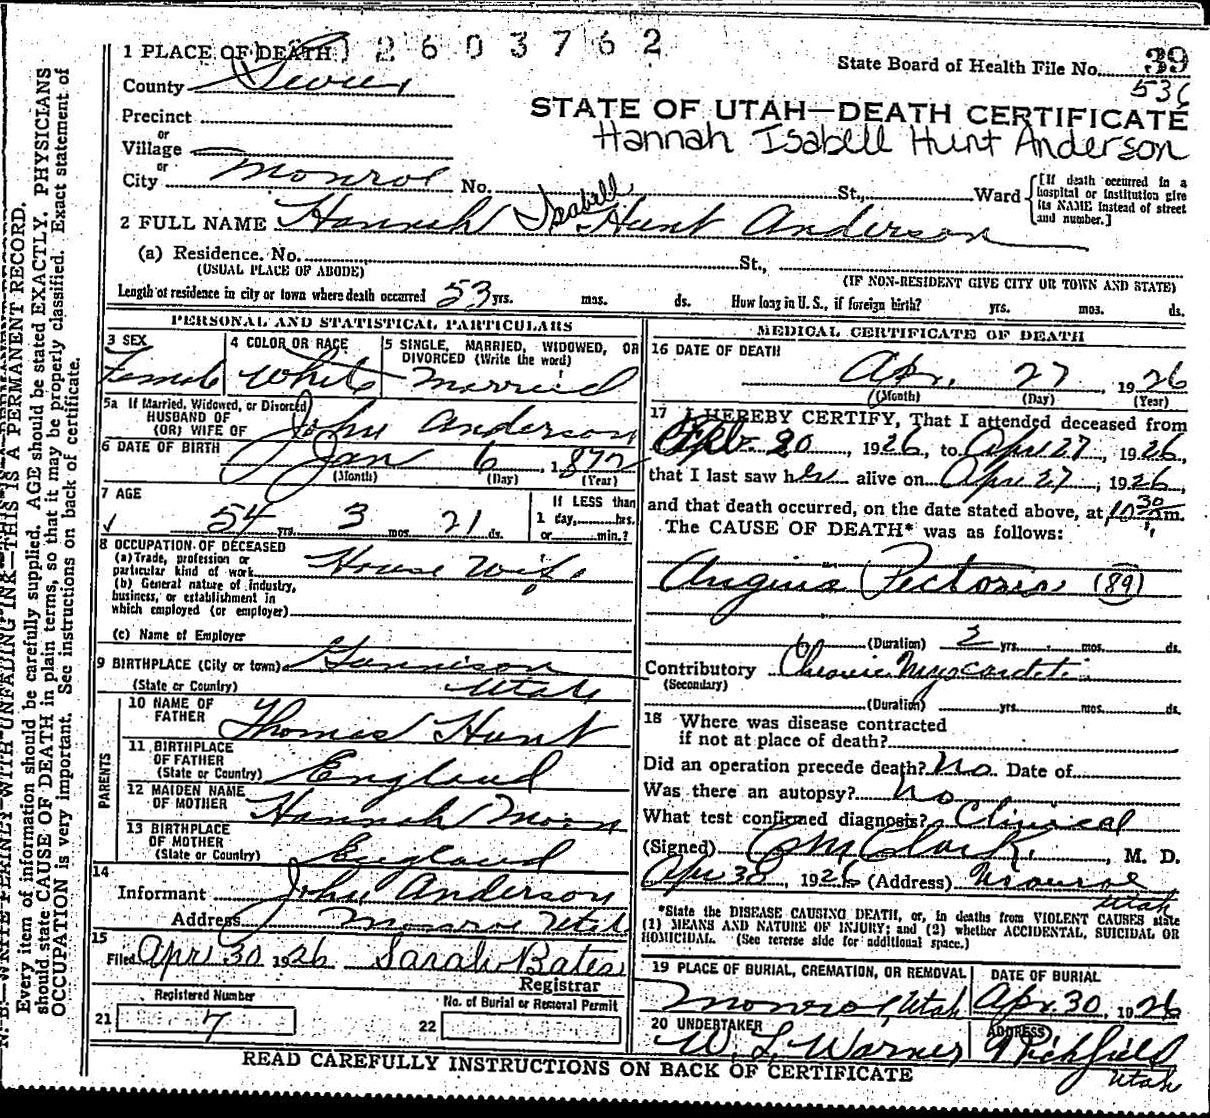 1 PLACE OF DEATH 2603762
County Sevier
State Board of Health File No. 39
536
Precinct
or
Village
or
City Monroe No. St., Ward
STATE OF UTAH—DEATH CERTIFICATE
Hannah Isabell Hunt Anderson
[If death occurred in a hospital or institution give its NAME instead of street and number.]
2 FULL NAME Hannah Isabell Hunt Anderson
(a) Residence. No. St.,
(USUAL PLACE OF ABODE) (IF NON-RESIDENT GIVE CITY OR TOWN AND STATE)
Length of residence in city or town where death occurred 53 yrs. mos. ds. How long in U. S., if foreign birth? yrs. mos. ds.
PERSONAL AND STATISTICAL PARTICULARS
3 SEX Female
4 COLOR OR RACE White
5 SINGLE, MARRIED, WIDOWED, OR DIVORCED (Write the word) Married
5a If Married, Widowed, or Divorced
HUSBAND OF
(OR) WIFE OF John Anderson
6 DATE OF BIRTH Jan 6, 1872
(Month) (Day) (Year)
7 AGE
54 yrs. 3 mos. 21 ds.
If LESS than
1 day, hrs.
or min.?
8 OCCUPATION OF DECEASED
(a) Trade, profession or
particular kind of work House Wife
(b) General nature of industry,
business, or establishment in
which employed (or employer)
(c) Name of Employer
9 BIRTHPLACE (City or town) Gunnison
(State or Country) Utah
PARENTS
10 NAME OF
FATHER Thomas Hunt
11 BIRTHPLACE
OF FATHER
(State or Country) England
12 MAIDEN NAME
OF MOTHER Hannah Moon
13 BIRTHPLACE
OF MOTHER
(State or Country) England
14
Informant John Anderson
Address Monroe Utah
15
Filed Apr 30 1926 Sarah Bates
Registrar
Registered Number
21 7
No. of Burial or Removal Permit
22
MEDICAL CERTIFICATE OF DEATH
16 DATE OF DEATH
Apr. 27, 1926
(Month) (Day) (Year)
17 I HEREBY CERTIFY, That I attended deceased from
20, 1926, to Apr 27, 1926,
that I last saw her alive on Apr. 27, 1926,
and that death occurred, on the date stated above, at 10 30 m.
The CAUSE OF DEATH* was as follows:
Angina Pectoris (89)
(Duration) 2 yrs. mos. ds.
Contributory Chronic Myocarditi
(Secondary)
(Duration) yrs. mos. ds.
18 Where was disease contracted
if not at place of death?
Did an operation precede death? No. Date of
Was there an autopsy? No
What test confirmed diagnosis? Clinical
(Signed) Clark, M. D.
Apr 30, 1926 (Address) Monroe
Utah
*State the DISEASE CAUSING DEATH, or, in deaths from VIOLENT CAUSES state
(1) MEANS AND NATURE OF INJURY; and (2) whether ACCIDENTAL, SUICIDAL OR
HOMICIDAL. (See reverse side for additional space.)
19 PLACE OF BURIAL, CREMATION, OR REMOVAL
Monroe, Utah
DATE OF BURIAL
Apr. 30, 1926
20 UNDERTAKER
W. L. Warner
ADDRESS
Richfield
Utah
READ CAREFULLY INSTRUCTIONS ON BACK OF CERTIFICATE
N. B.—WRITE PLAINLY WITH UNFADING INK—THIS IS A PERMANENT RECORD.
Every item of information should be carefully supplied. AGE should be stated EXACTLY. PHYSICIANS
should state CAUSE OF DEATH in plain terms, so that it may be properly classified. Exact statement of
OCCUPATION is very important. See instructions on back of certificate.